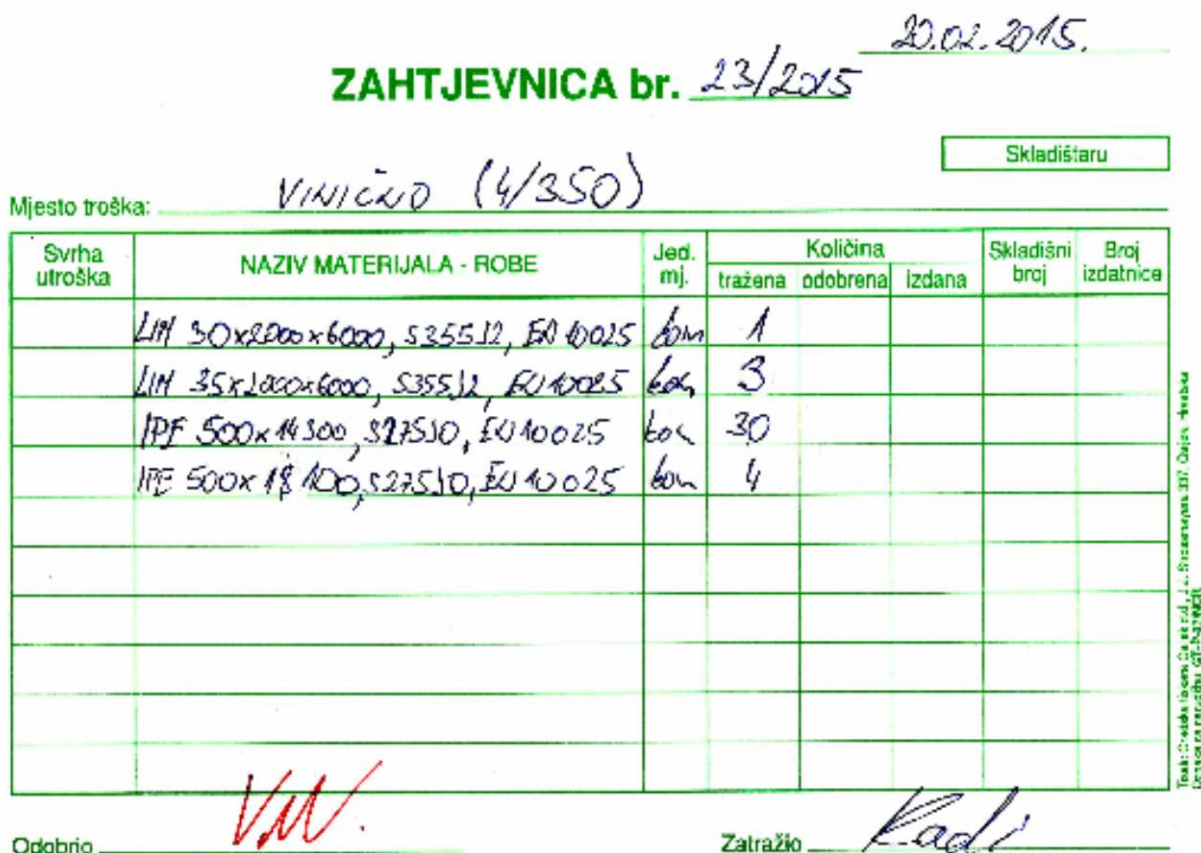 20.02.2015.
ZAHTJEVNICA br. 23/2015
Skladištaru
Mjesto troška: VINIČNO (4/350)
Svrha utroška NAZIV MATERIJALA - ROBE Jed. mj. Količina tražena odobrena izdana Skladišni broj Broj izdatnice
LIM 30x2000x6000, S355J2, EN 10025 kom 1
LIM 35x2000x6000, S355J2, EN 10025 kom 3
IPE 500x14300, S275J0, EN 10025 kom 30
IPE 500x18100, S275J0, EN 10025 kom 4
Odobrio
Zatražio